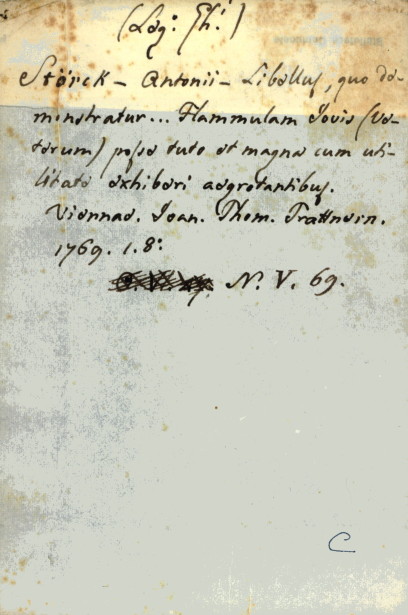 (Log: Th:)
Störck – Antonii – Libellus, quo de-
monstratur... Flammulam Jovis (Ve-
terum) posse tuto et magna cum uti-
litate exhiberi aegrotantibus.
Viennae. Joan. Thom. Trattnern.
1769. 1. 8:
N. V. 69.
C